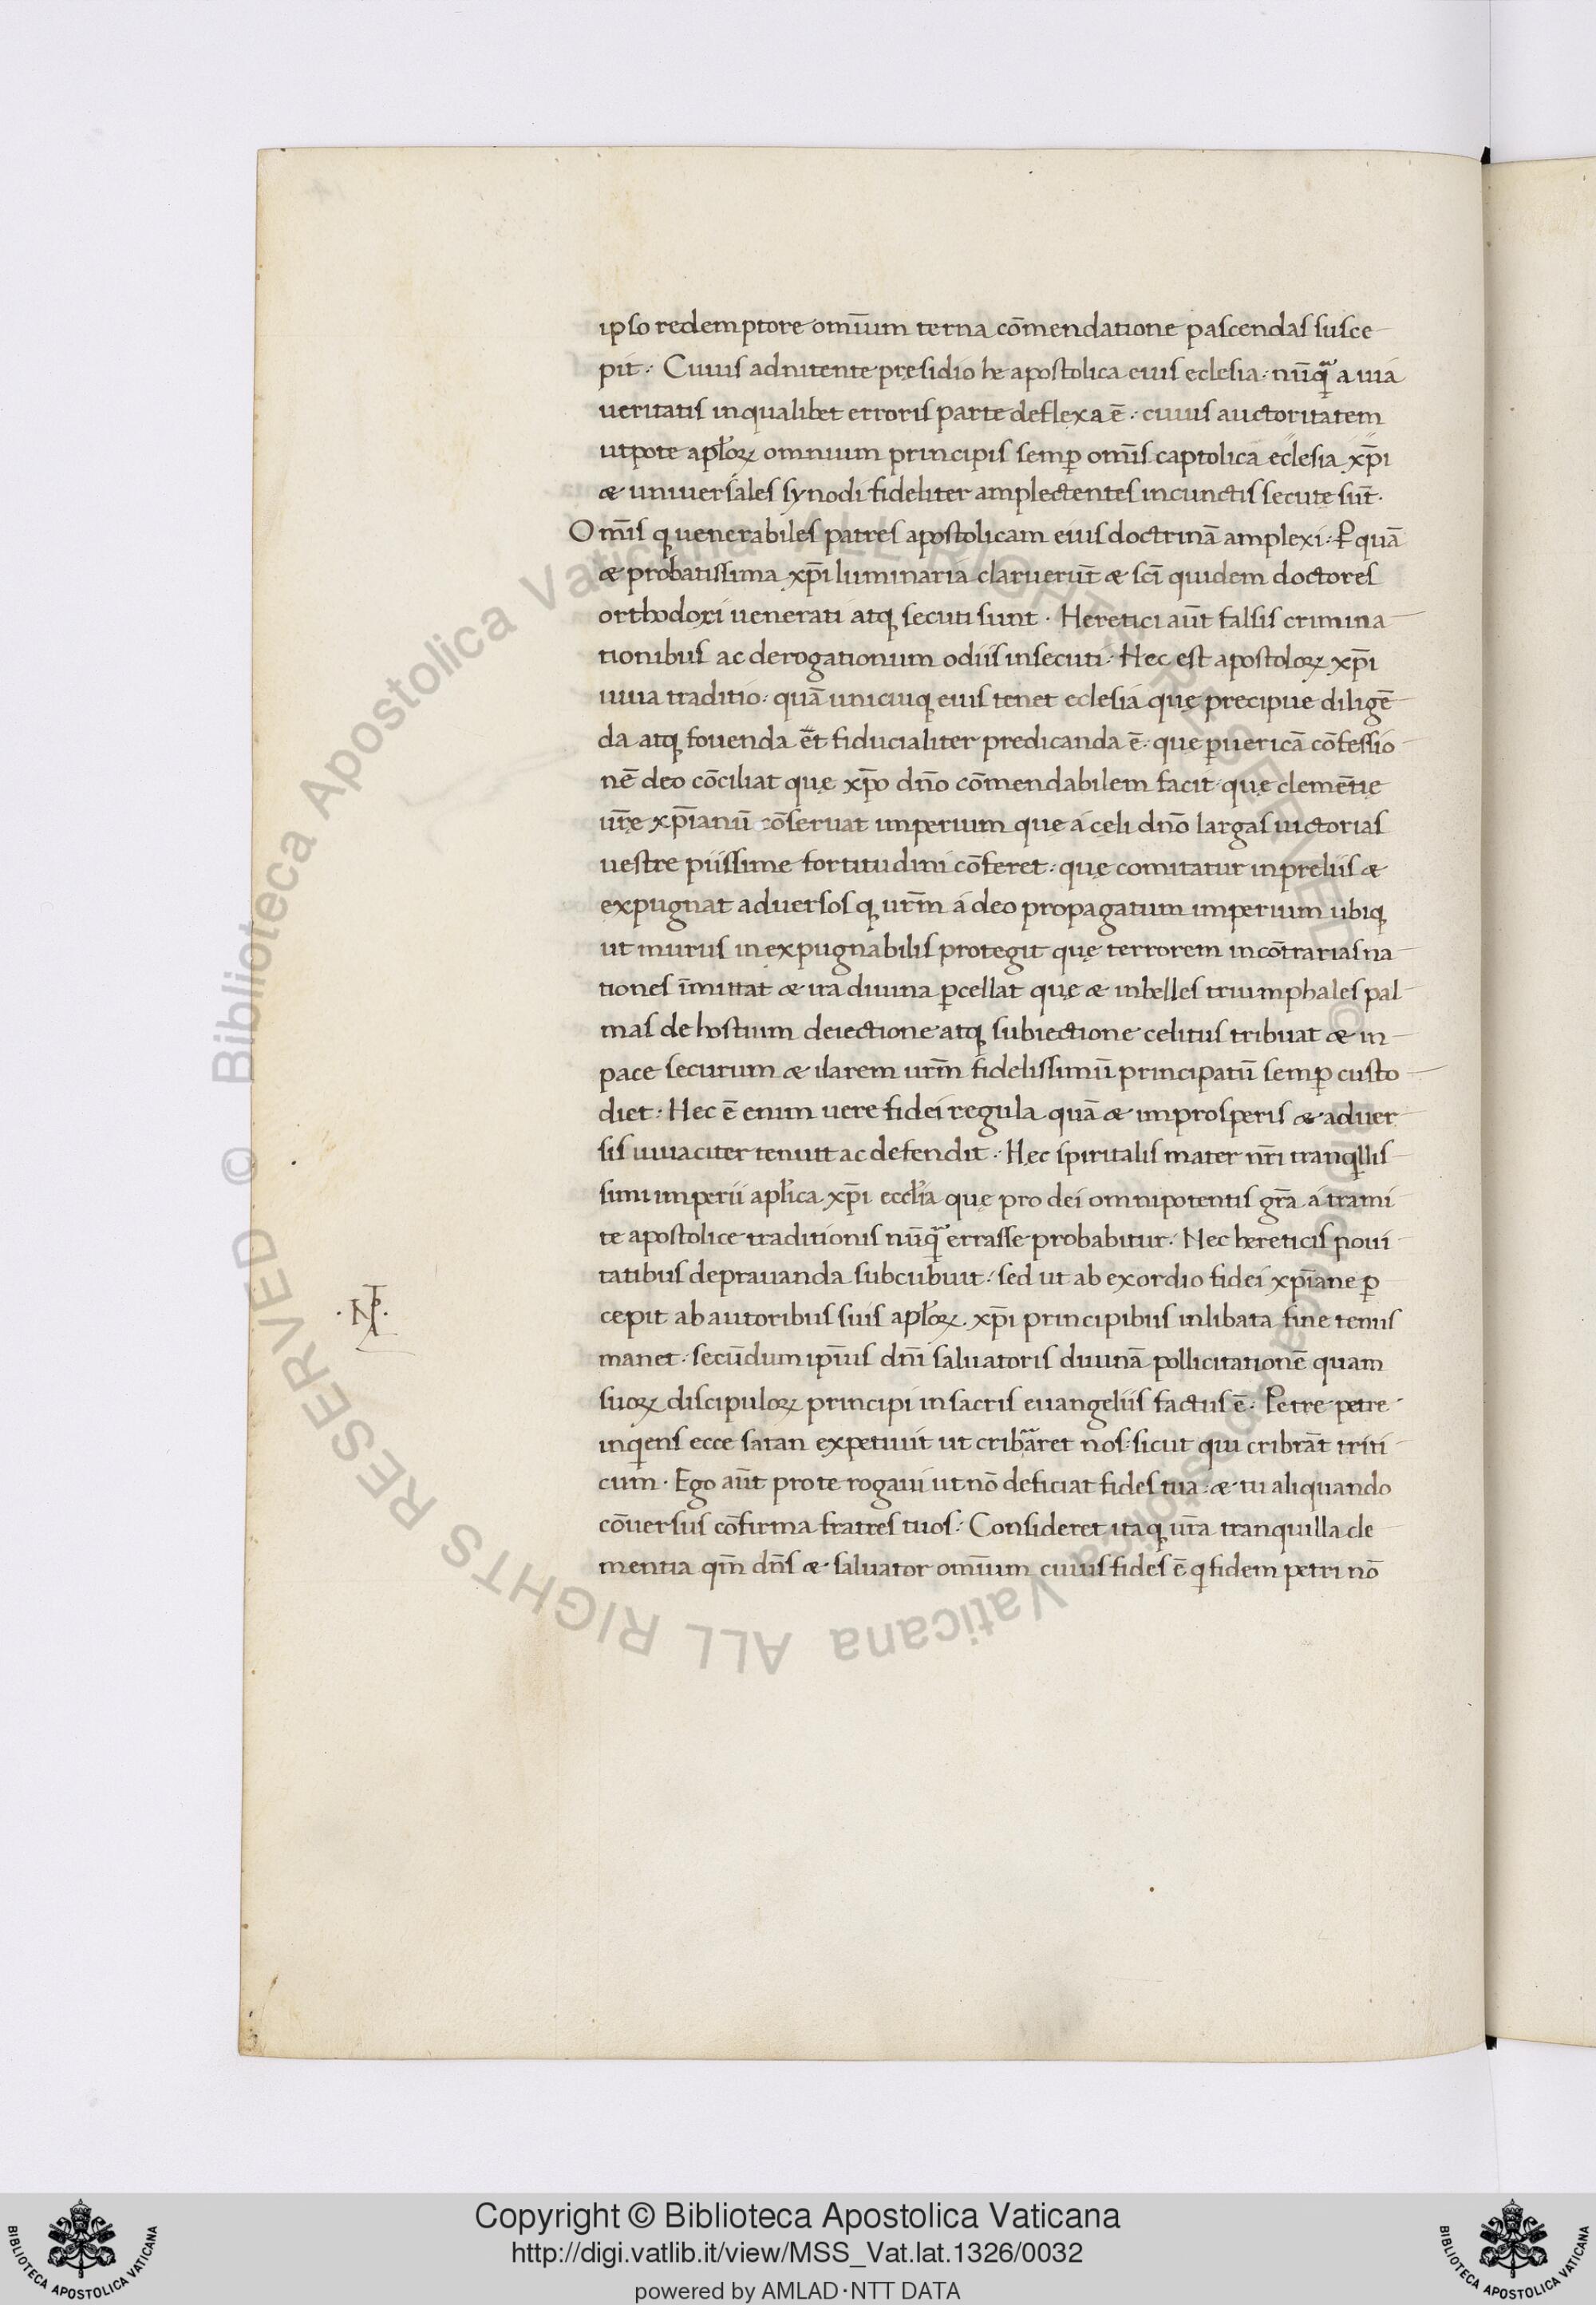 ipso redemptore omiūm terna cōmendatione pascendas susce
pit· Cuius adnitente presidio he apostolica eius eclesia· nūqᷓ a uia
ueritatis inqualibet erroris parte deflexa ē· cuius auctoritatem
utpote apƚoꝝ omnium principis semꝑ om̄is captolica eclesia xp̄i
& uniuersales synodi fideliter amplectentes incunctis secute sūt·
Om̄is q; uenerabiles patres apostolicam eius doctrinā amplexi· ꝑ quā
& probatissima xp̄i luminaria claruerūt & sc̄i quidem doctores
orthodoxi uenerati atq; secuti sunt· Heretici aūt falsis crimina
tionibus ac derogationum odiis insecuti· Hec est apostoloꝝ xp̄i
uiua traditio· quā unicuiq; eius tenet eclesia que precipue diligē
da atq; fouenda ēt fiducialiter predicanda ē· que ꝑuericā cōfessio
nē deo cōciliat quę xp̄o dn̄o cōmendabilem facit· quę clemētię
ur̄ę xp̄ianū cōseruat imperium que a cęli dn̄o largas uictorias
uestre piissime fortitudini cōferet· quę comitatur inpreliis &
expugnat aduersosq; ur̄m a deo propagatum imperium ubiq;
ut murus inexpugnabilis protegit quę terrorem incōtrarias na
tiones īmittat & ira diuina ꝑcellat quę & inbelles triumphales pal
mas de hostium deiectione atq; subiectione celitus tribuat & in
pace securum & ilarem ur̄m fidelissimū principatū semꝑ custo
diet· Hec ē enim uere fidei regula quā & improsperis & aduer
sis uiuaciter tenuit ac defendit· Hęc spiritalis mater nr̄i tranqllis
simi imperii apƚica xp̄i eccƚia quę pro dei omnipotentis gr̄a a trami
te apostolice traditionis nūqᷓ errasse probabitur· Nec hereticis noui
tatibus deprauanda subcubuit· sed ut ab exordio fidei xp̄iane ꝑ
cepit ab autoribus suis apƚoꝝ xp̄i principibus inlibata fine tenus
·NT·
manet· secūdum ip̄ius dn̄i saluatoris diuinā pollicitationē quam
suoꝝ discipuloꝝ principi in sacris euangeliis factus ē· Petre petre
inqens ecce satan expetiuit ut cribāret nos· sicut qui cribrāt triti
cum· Ego aūt pro te rogaui ut nō deficiat fides tua· & tu aliquando
cōuersus cōfirma fratres tuos· Consideret itaq; ur̄a tranquilla cle
mentia qm̄ dn̄s & saluator omiūm cuius fides ē q fidem petri nō
Copyright © Biblioteca Apostolica Vaticana
http://digi.vatlib.it/view/MSS_Vat.lat.1326/0032
powered by AMLAD·NTT DATA
© Biblioteca Apostolica Vaticana ALL RIGHTS RESERVED
© Biblioteca Apostolica Vaticana ALL RIGHTS RESERVED
BIBLIOTECA APOSTOLICA VATICANA
BIBLIOTECA APOSTOLICA VATICANA